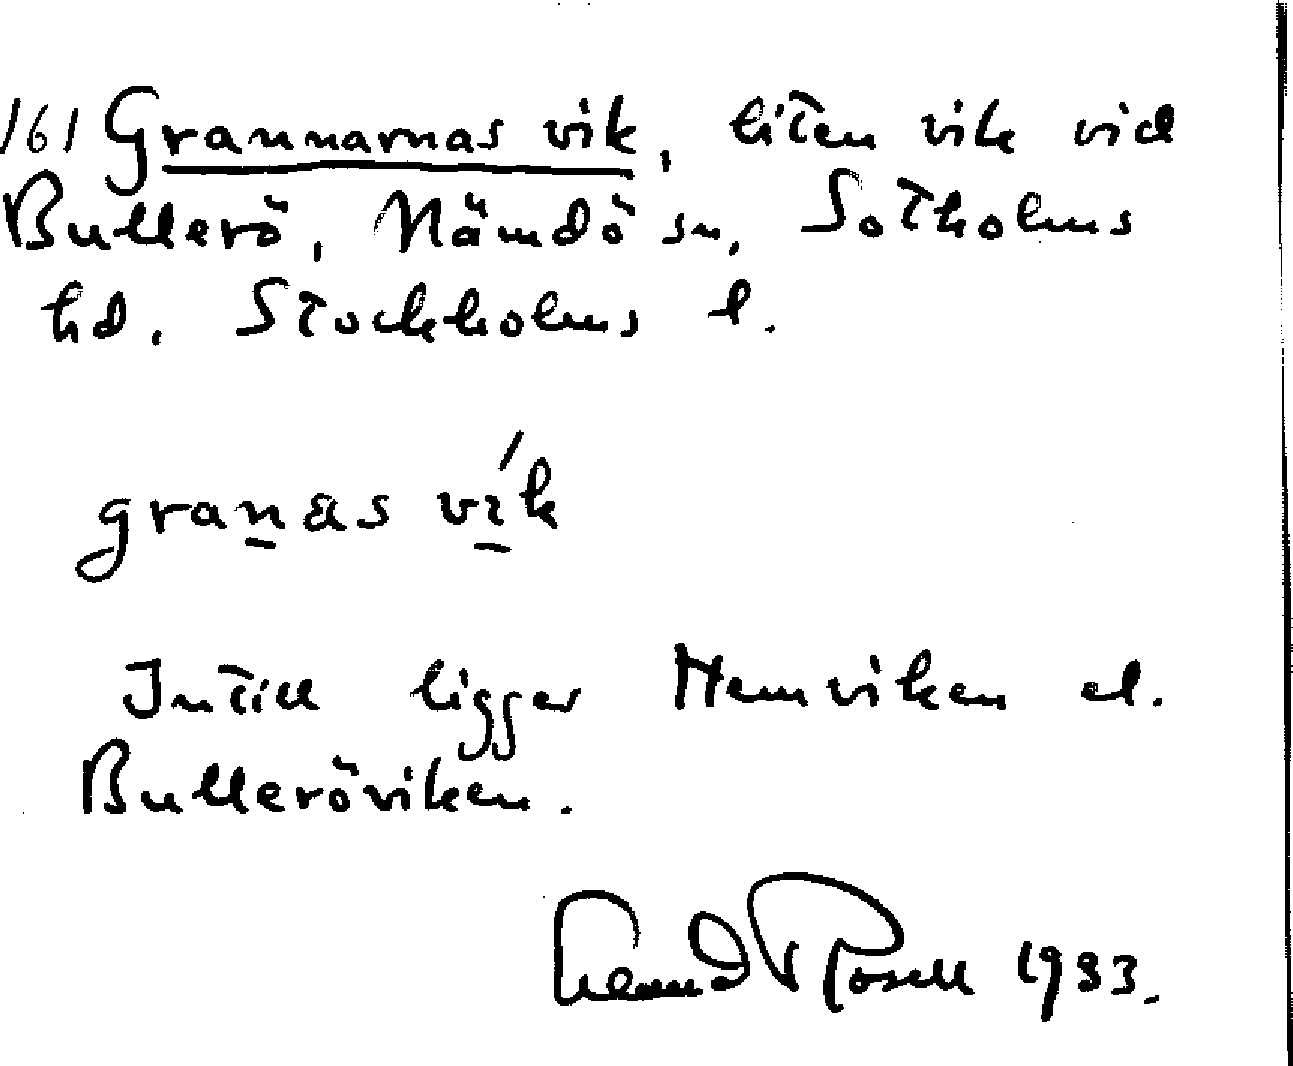 161 Grannarnas vik, liten vik vid
Bullerö, Nämdö sn, Sotholms
hd. Stockholms l.
granas vík
Intill ligger Hemviken el.
Bulleröviken.
Rosell 1983.